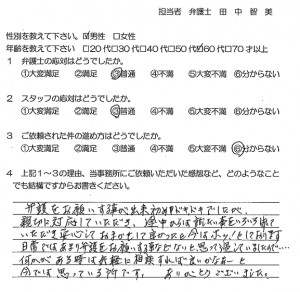 担当者　弁護士　田　中　智　美
性別を教えて下さい。☑男性　□女性
年齢を教えて下さい　□20代□30代□40代□50代☑60代□70才以上
1　弁護士の応対はどうでしたか。
①大変満足　②満足　③普通　④不満　⑤大変不満　⑥分からない
2　スタッフの応対はどうでしたか。
①大変満足　②満足　③普通　④不満　⑤大変不満　⑥分からない
3　ご依頼された件の進め方はどうでしたか。
①大変満足　②満足　③普通　④不満　⑤大変不満　⑥分からない
4　上記1～3の理由、当事務所にご依頼いただいた感想など、どのようなこと
でも結構ですからお書きください。
弁護をお願いする事が出来初めドキドキでしたが、
親切に対応していただき、途中からは
いただき安心しておまかせして良かったと今はホッとしております
日常ではあまり弁護をお願いする事などないと思って過していましたが…
何かがある時は気軽に相談すれば良いかなーと
今では思っている所です。　ありがとうございました。